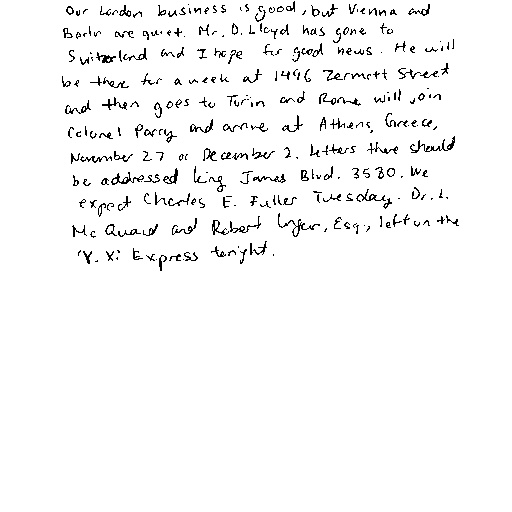 Our London business is good, but Vienna and
Berlin are quiet. Mr. D. Lloyd has gone to
Switzerland and I hope for good news. He will
be there for a week at 1496 Zermott Street
and then goes to Turin and Rome will join
Colonel Parry and arrive at Athens, Greece,
November 27 or December 2. Letters there should
be addressed King James Blvd. 3580. We
expect Charles E. Fuller Tuesday. Dr. L.
McQuaid and Robert Unger, Esq., left on the
"Y. X: Express tonight.